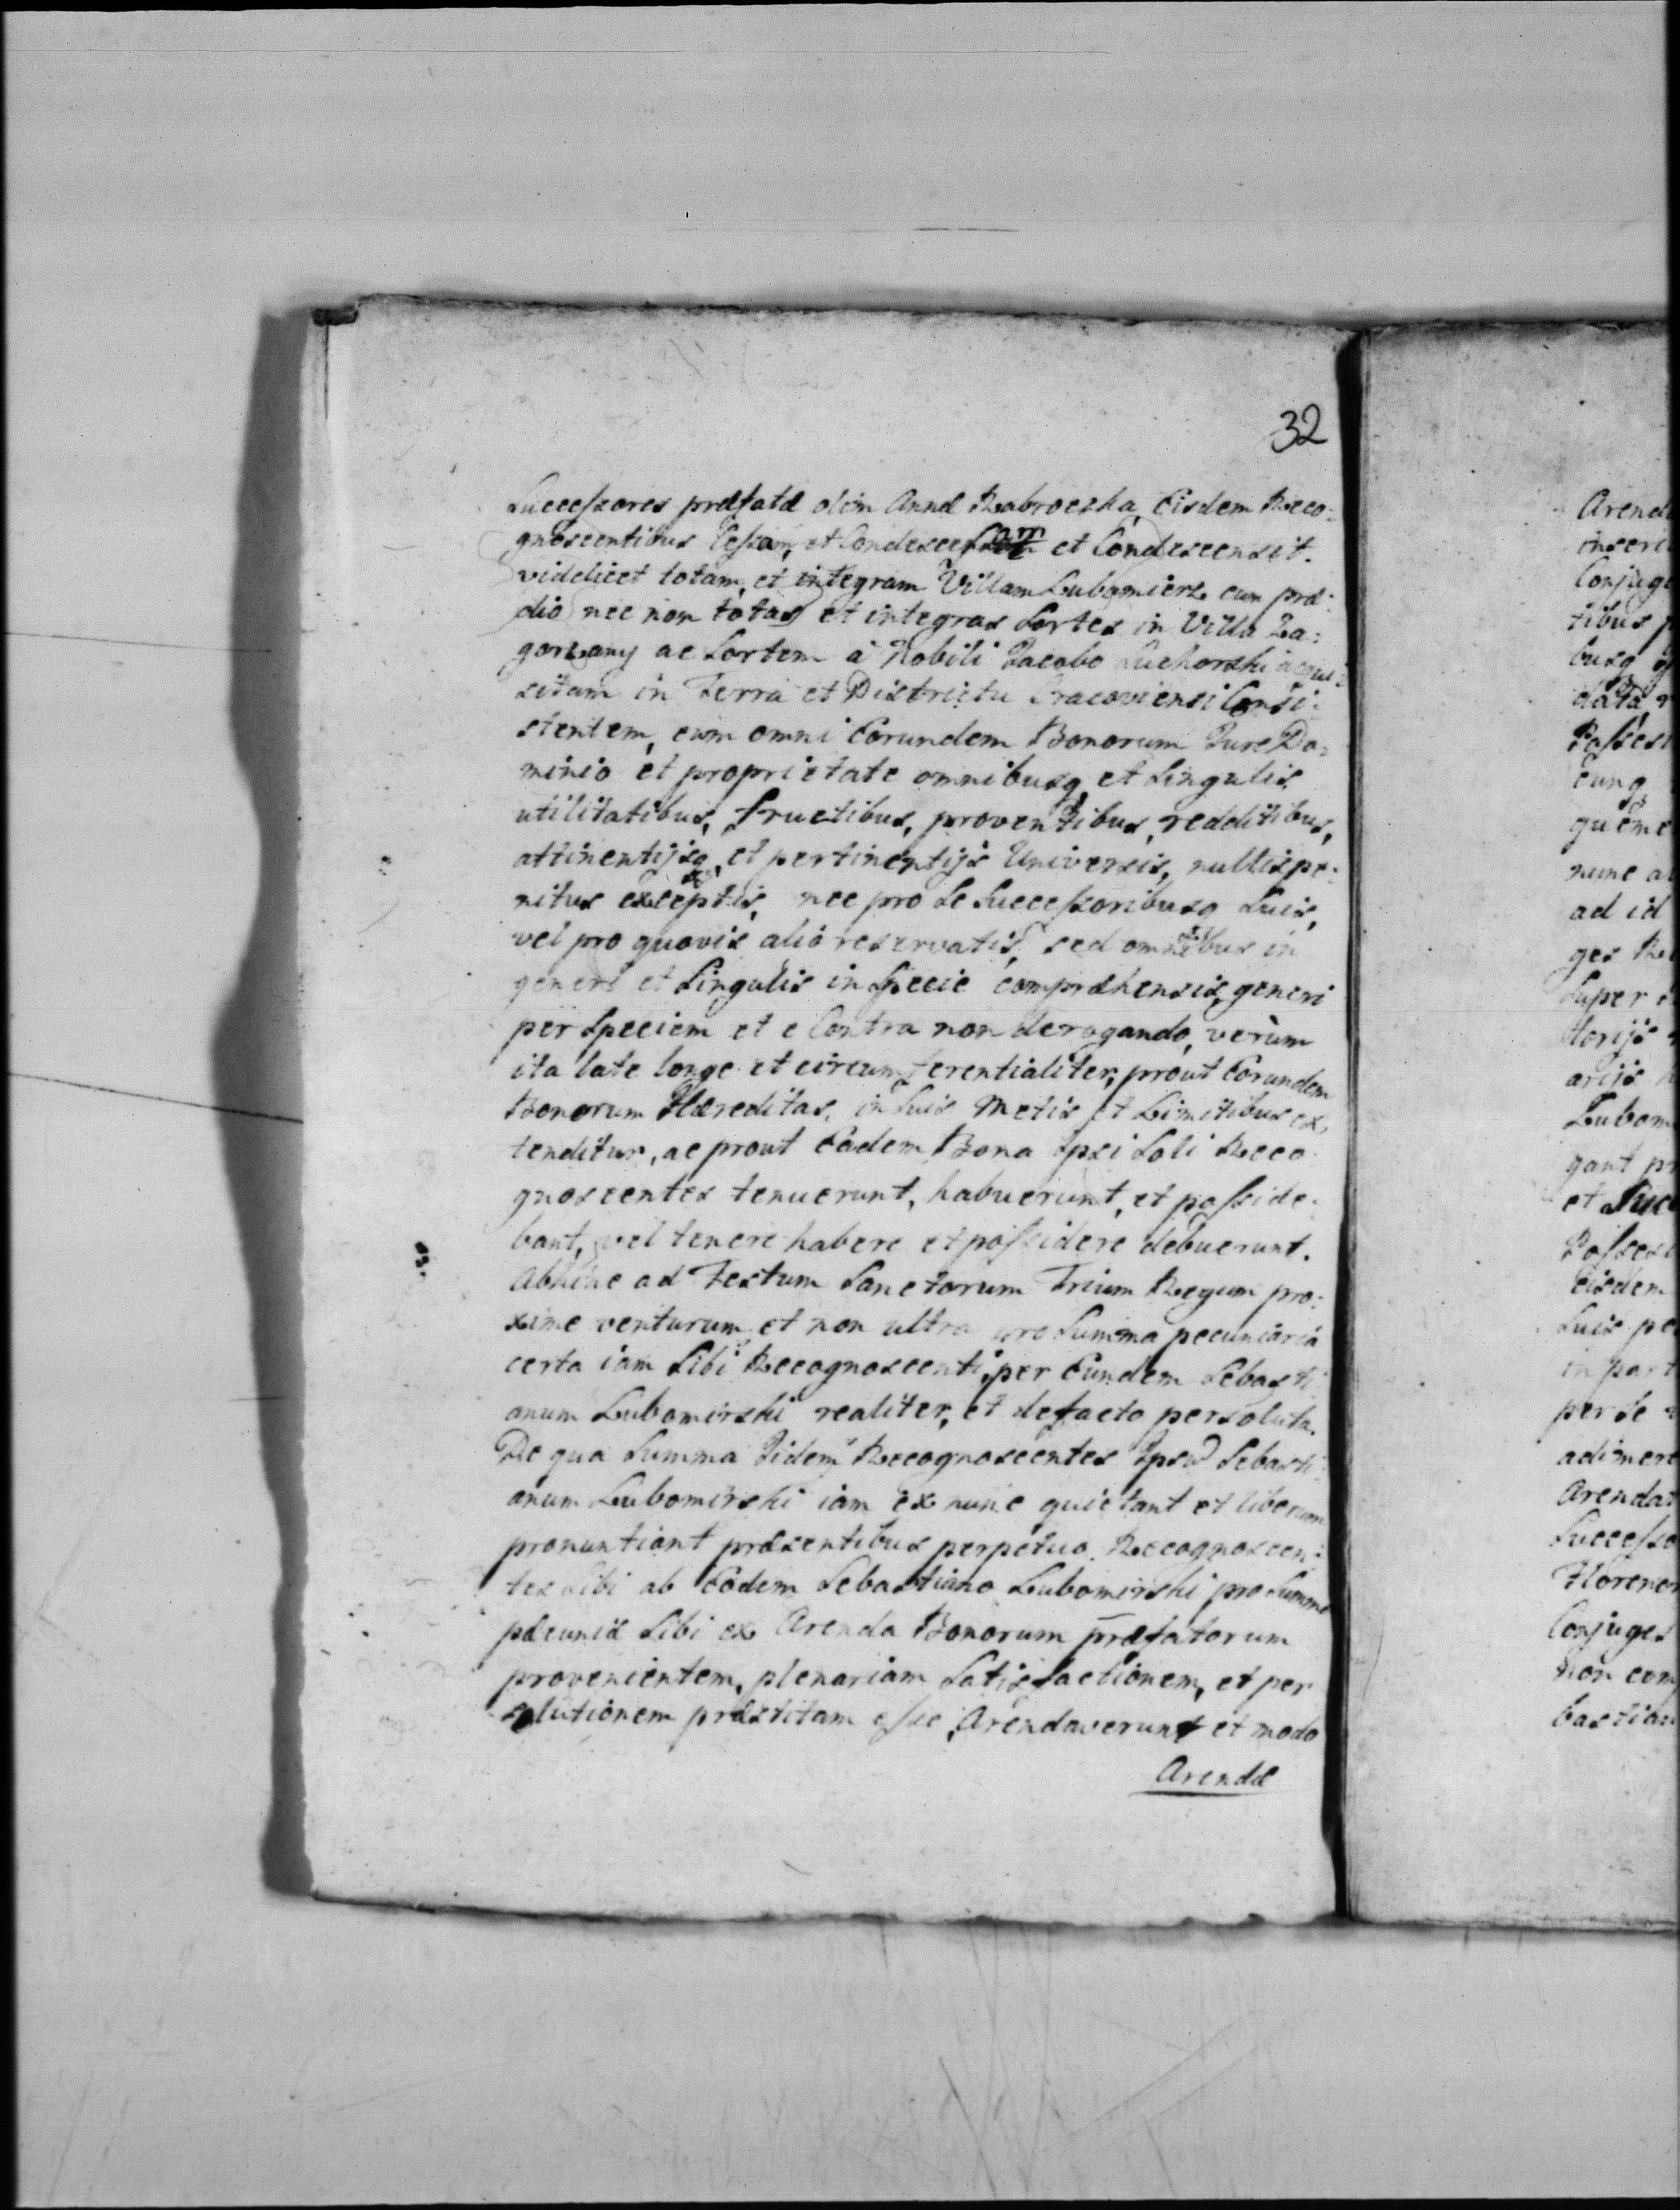 32
Successores præfatæ olim Annæ Rabrocska, Eisdem Reco:
gnoscentibus Cessam, et Condescensam et Condescensit.
videlicet totam, et integram Villam Lubomierz cum præ:
dio nec non totas et integras Sortes in Villa Za:
gorzany ac Sortem à Nobili Jacobo Suchorski acqui:
sitam in Terra et Districtu Cracoviensi Consi:
stentem, cum omni Eorundem Bonorum Jure Do:
minio et proprietate omnibusq, et Singulis
utilitatibus, fructibus, proventibus, redditibus,
attinentijsq, et pertinentijs Universis, nullis pe:
nitus exceptis, nec pro Se Successoribusq Suis,
vel pro quovis alio reservatis, sed omnibus in
genere et Singulis in Specie compræhensis, generi
per Speciem et e Contra non derogando, verùm
ita late longe et circumferentialiter, prout Eorundem
Bonorum Hæreditas, in Suis Metis et Limitibus ex
tenditur, ac prout Eadem Bona Ipsi Soli Reco
gnoscentes tenuerunt, habuerunt, et posside:
bant, vel tenere habere et possidere debuerunt.
Abhinc ad Festum Sanctorum Trium Regum pro:
xime venturum et non ultra pro Summa pecuniaria
certa iam Sibi Recognoscenti, per Eundem Sebasti
anum Lubomirski realiter, et defacto persoluta.
De qua Summa Iidem Recognoscentes Ipsū Sebasti
anum Lubomirski iam ex nunc quietant et liberum
pronuntiant præsentibus perpetuo. Recognoscen:
tes Sibi ab Eodem Sebastiano Lubomirski pro Summa
pæcuniæ Sibi ex Arenda Bonorum præfatorum
provenientem, plenariam Satisfactionem, et per
solutionem præstitam esse, Arendaverunt et modo
Arendæ
Arend
inseri
Conjug
tibus p
busq
data,
Posses
cunq
queme
nunc a
ad id
ges Re
Super
torijs
arijs
Lubom
gant pr
et Succ
Posses
Eisdem
Suis pe
in part
per Se
adimere
Arendat
Successo
Floreno
Conjuges
non com
bastian